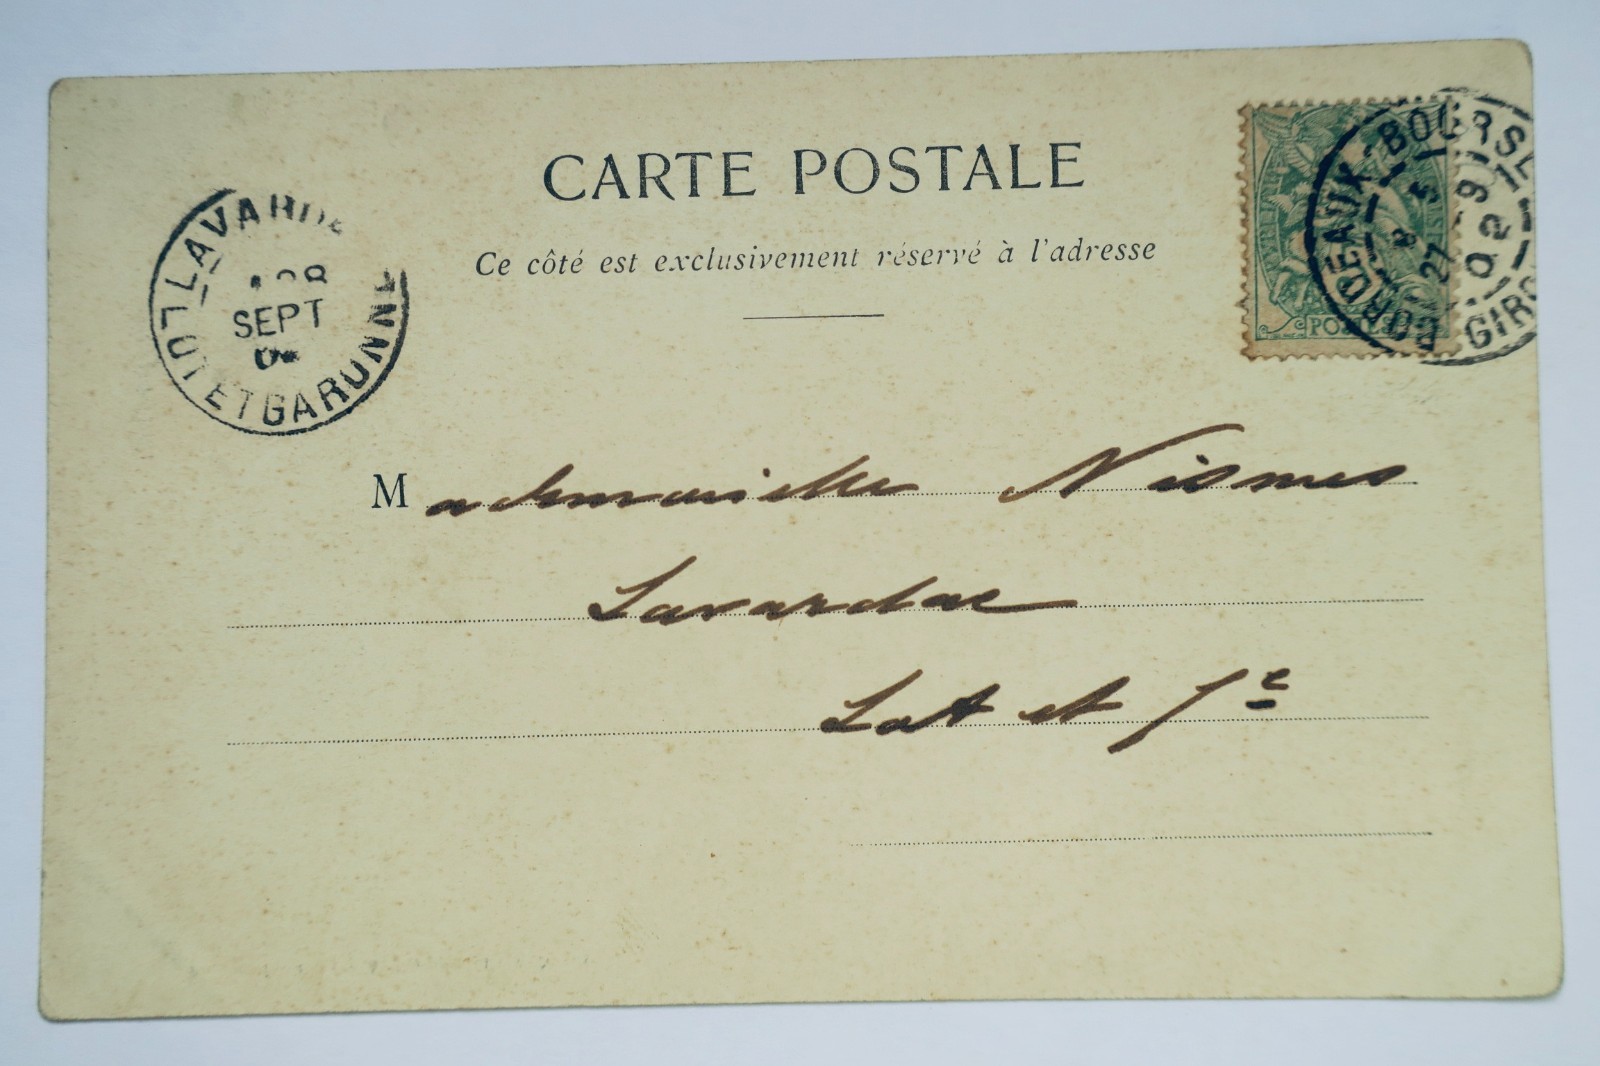 CARTE POSTALE
Ce côté est exclusivement réservé à l'adresse
LAVARDA
SEPT
LOT ET GARONNE
BORDEAUX-BOURSE
27
GIRO
POSTES
Mademoiselle Nismes
Lavardac
Lot et Gne